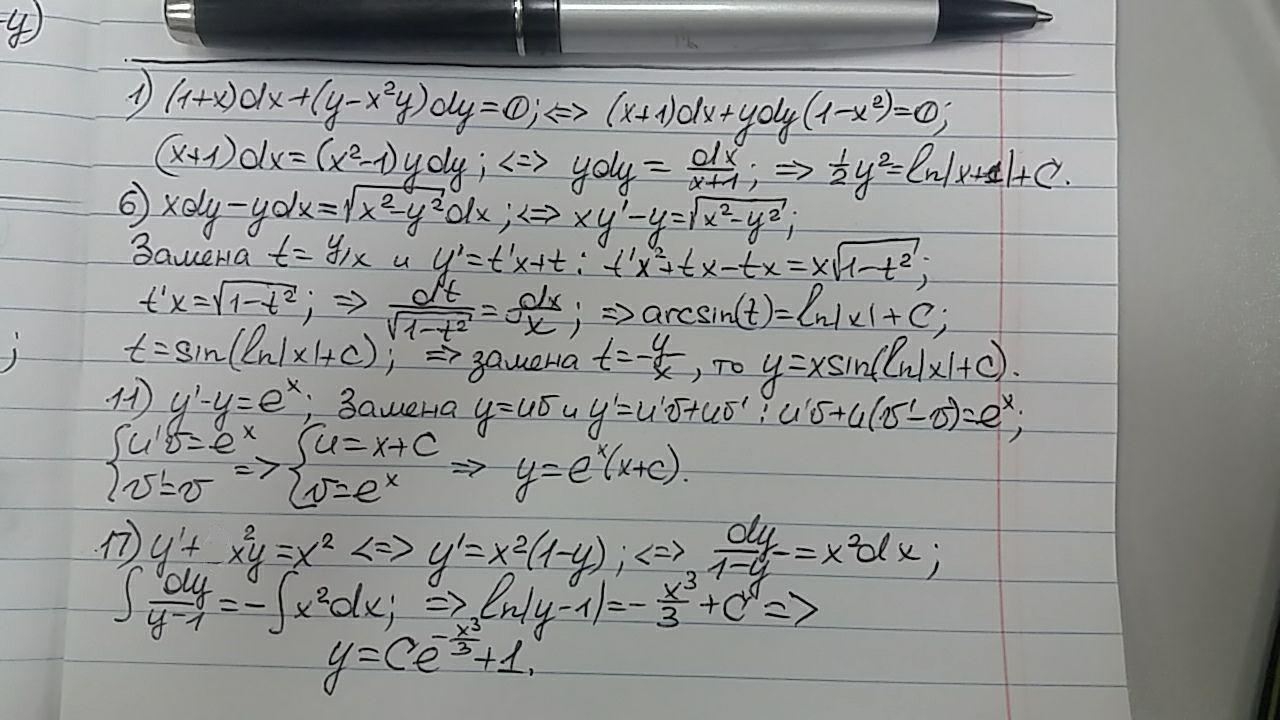 -y)
1) (1+x)dx+(y-x²y)dy=0; <=> (x+1)dx+ydy(1-x²)=0;
(x+1)dx=(x²-1)ydy; <=> ydy = dx/(x+1); => 1/2 y²=ln|x+1|+C.
6) xdy-ydx=√(x²-y²)dx; <=> xy'-y=√(x²-y²);
Замена t=y/x и y'=t'x+t: t'x²+tx-tx=x√(1-t²);
;
t'x=√(1-t²); => dt/√(1-t²)=dx/x; => arcsin(t)=ln|x|+C;
t=sin(ln|x|+C); => замена t=y/x, то y=xsin(ln|x|+C).
11) y'-y=eˣ; Замена y=uv и y'=u'v+uv': u'v+u(v'-v)=eˣ;
{u'v=eˣ; v'=v => {u=x+C; v=eˣ => y=eˣ(x+C).
17) y'+x²y=x² <=> y'=x²(1-y); <=> dy/(1-y)=x²dx;
∫dy/(y-1)=-∫x²dx; => ln|y-1|=-x³/3+C =>
y=Ce^(-x³/3)+1.